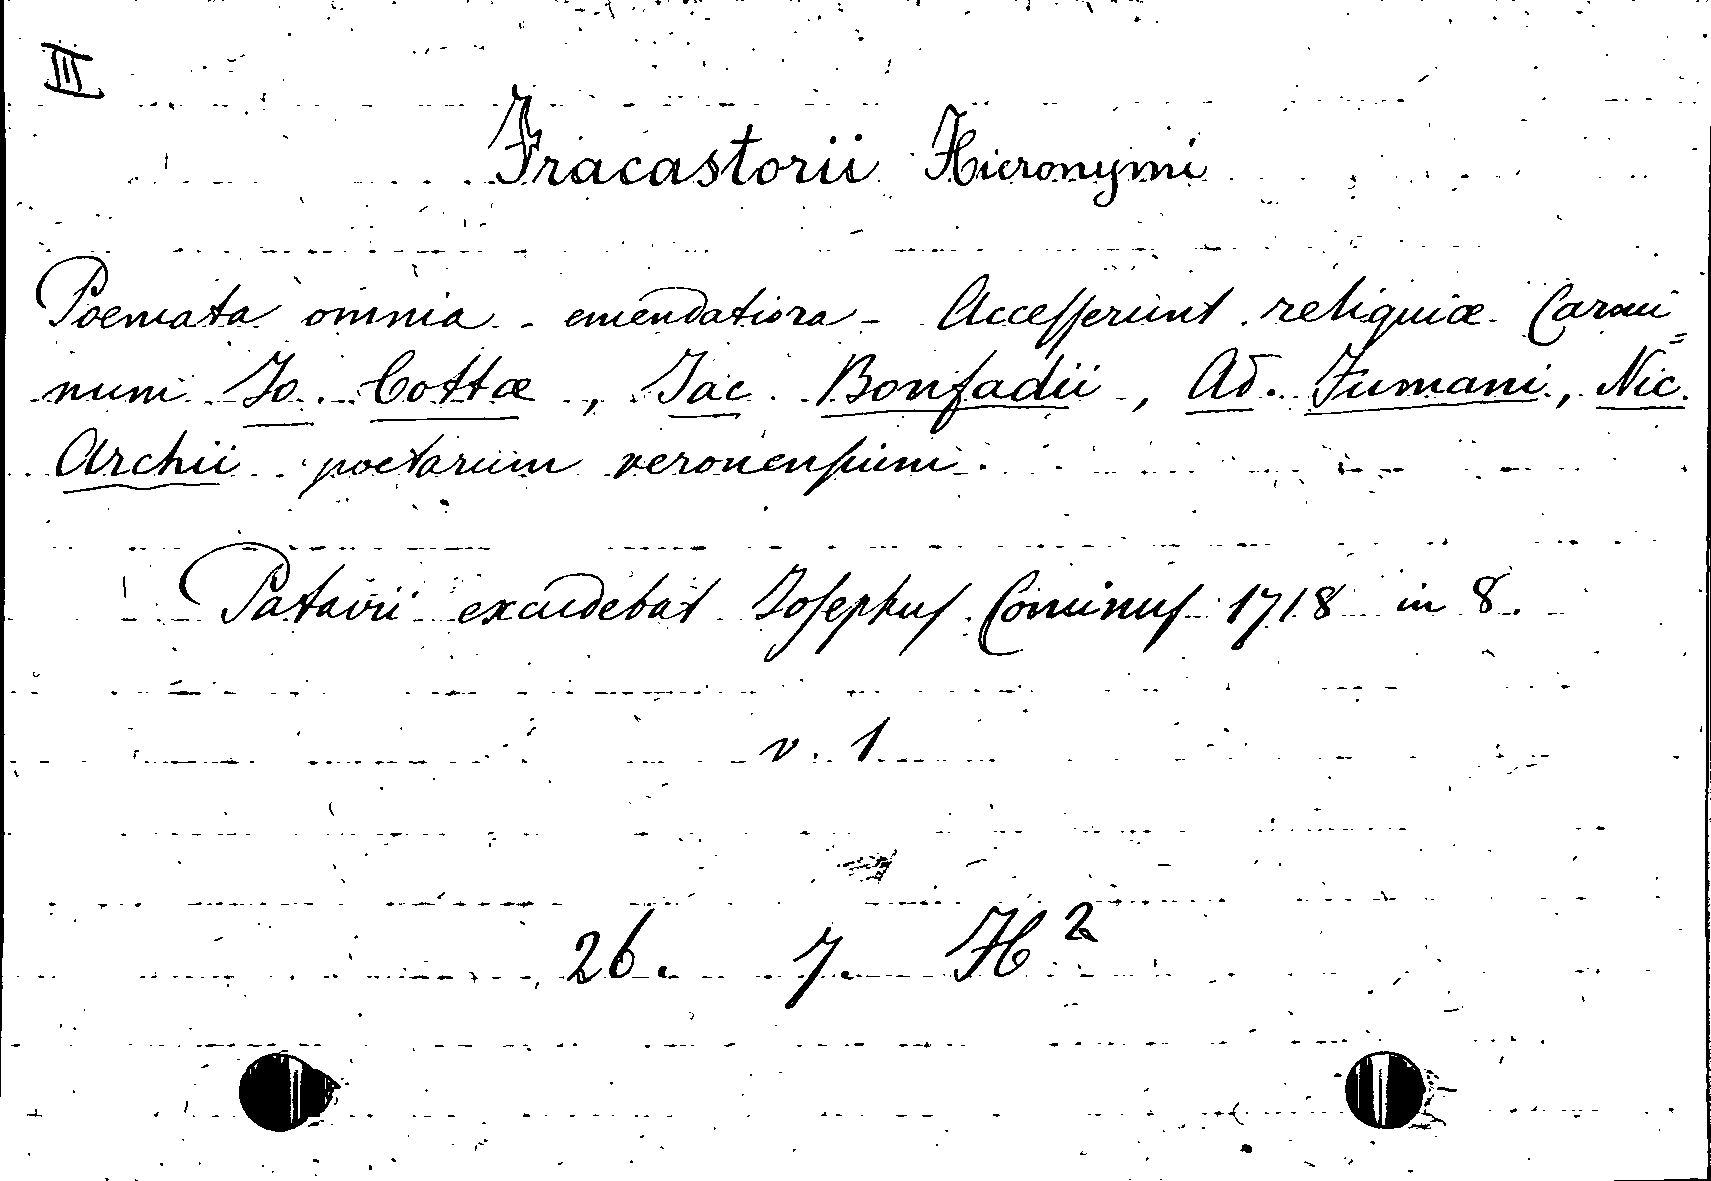 III
Fracastorii Hieronymi
Poemata omnia - emendatiora - Accesserunt reliquiæ Carmi=
num Jo. Cottæ, Jac. Bonfadii, Ad. Fumani, Nic.
Archii poetarum veronensium.
Patavii excudebat Josephus Cominus 1718 in 8.
v. 1
26. 7. H²